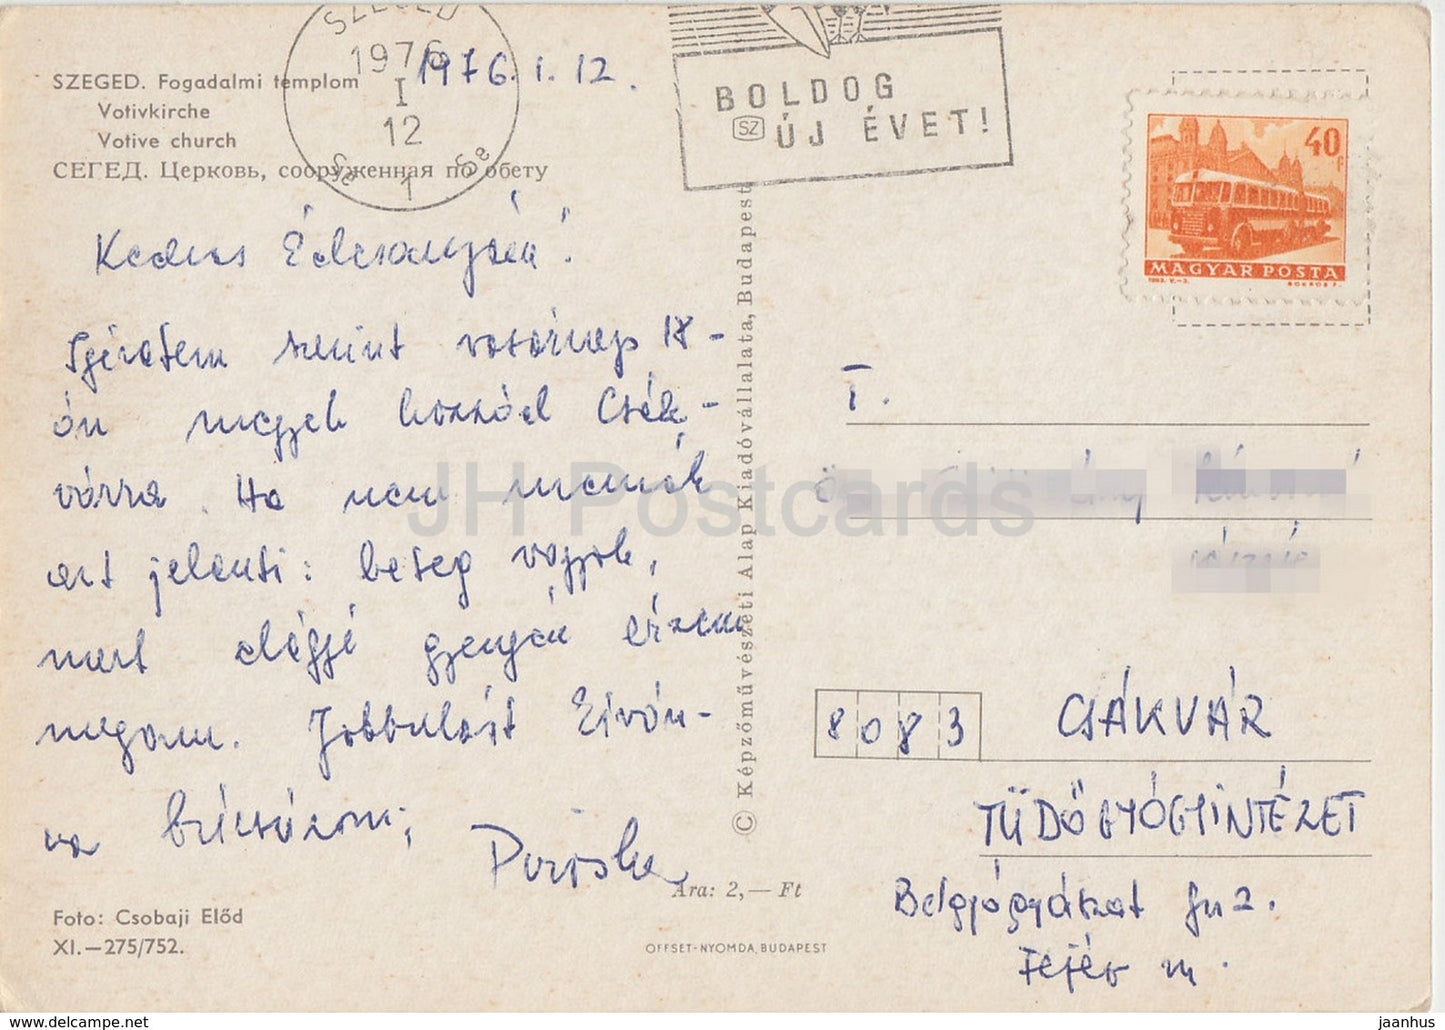 SZEGED. Fogadalmi templom
Votivkirche
Votive church
СЕГЕД. Церковь, сооруженная по обету
SZEGED
1976
I
12
1
1976. I. 12.
BOLDOG
SZ ÚJ ÉVET!
40 f
MAGYAR POSTA
Kedves Édesanyám!
Ígéretem szerint vasárnap 18-
án megyek hozzád Csák-
várra. Ha nem mennék
azt jelenti: beteg vagyok,
mert eléggé gyengén érzem
magam. Jobbulást kíván-
va búcsúzom;
Piroska
© Képzőművészeti Alap Kiadóvállalata, Budapest
T.
8083
CSÁKVÁR
TÜDŐGYÓGYINTÉZET
Belgyógyászat
Fejér m.
Ára: 2,— Ft
Foto: Csobaji Előd
XI.—275/752.
OFFSET-NYOMDA, BUDAPEST
JH Postcards
www.delcampe.net
jaanhus